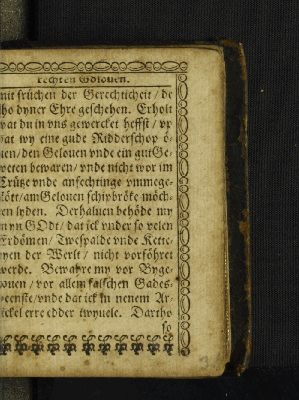 rechten Gdlouen.
mit früchen der Gerechticheit / de
tho dyner Ehre geschehen. Erholt
wat du in vns gewercket heffst / vp
dat wy eine gude Ridderschop ö-
uen / den Gelouen vnde ein gut Ge-
weten bewaren / vnde nicht vor im
Crütze vnde anfechtinge vmmege-
stött / am Gelouen schipbröke möch-
ten lyden. Derhaluen behöde my
myn GOdt / dat ick vnder so velen
Erdömen / Twespalde vnde Kette-
ryen der Werlt / nicht vorföhret
werde. Bewahre my vor Byge-
louen / vor allem falschen Gades-
deenste / vnde dat ick in nenem Ar-
tickel erre edder twyuele. Dartho
so